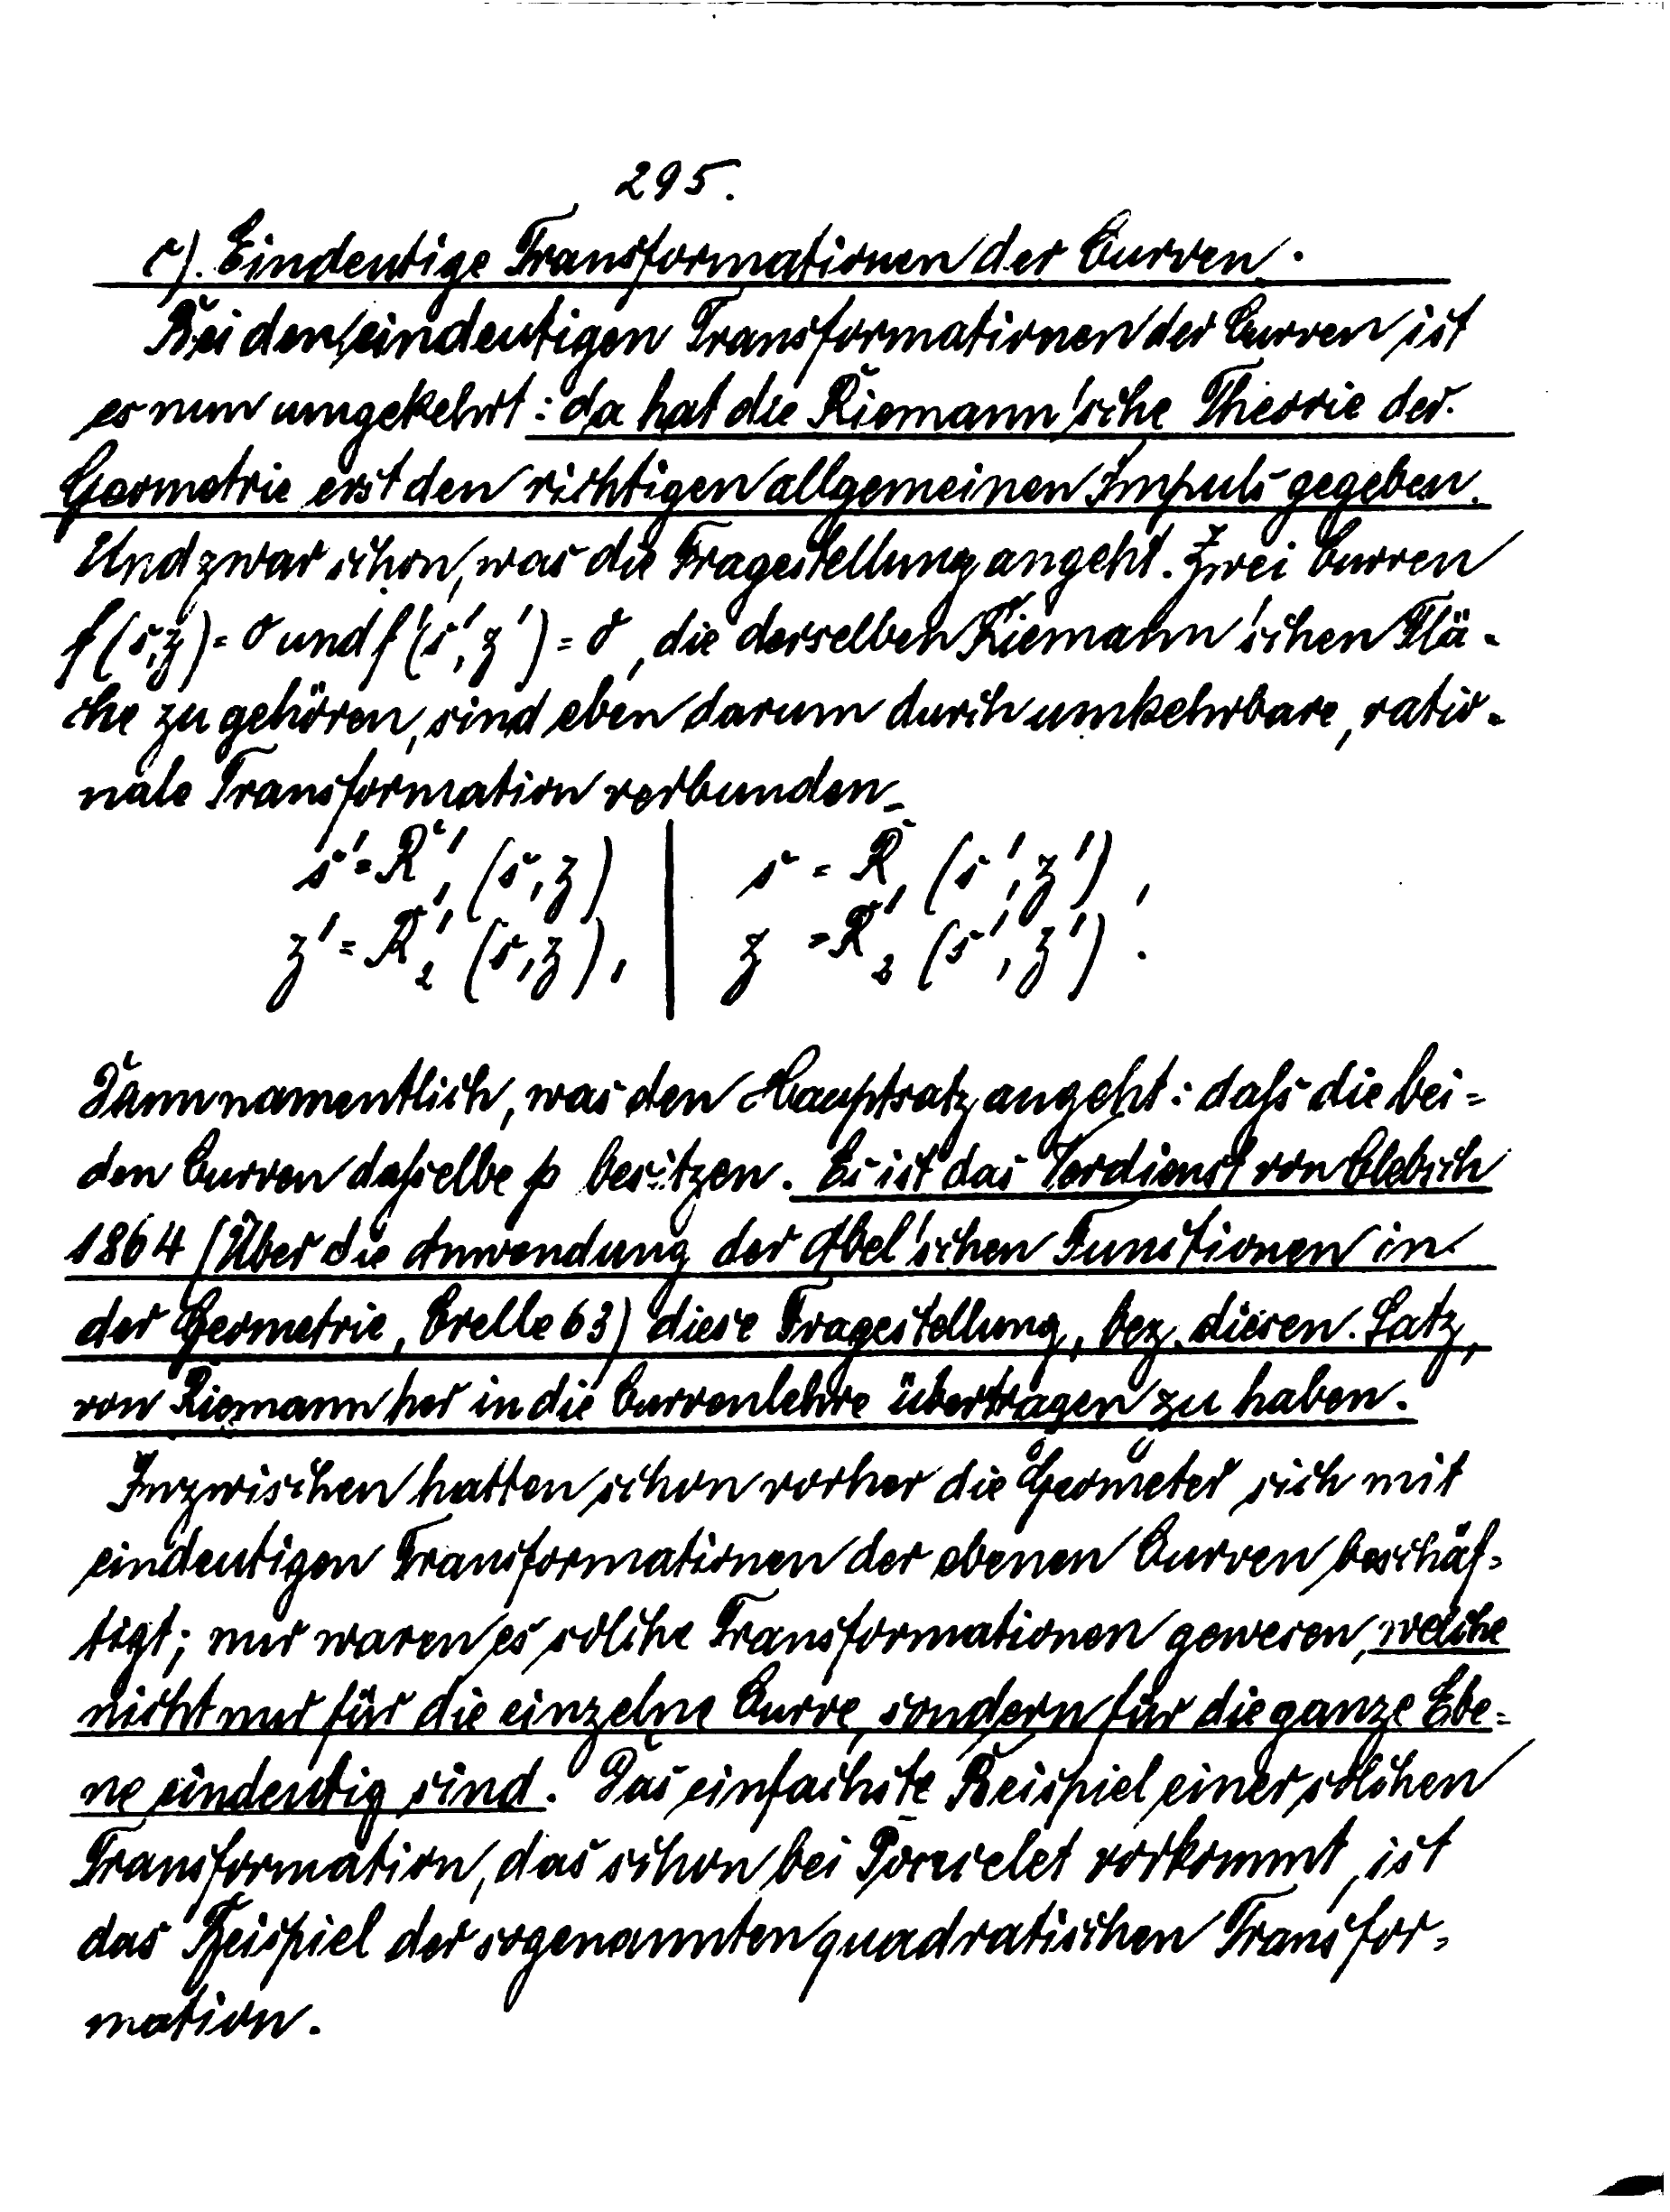 295.
c). Eindeutige Transformationen der Curven.
Bei den eindeutigen Transformationen der Curven ist
es nun umgekehrt: da hat die Riemann'sche Theorie der
Geometrie erst den richtigen allgemeinen Impuls gegeben.
Und zwar schon, was die Fragestellung angeht. Zwei Curven
f(s,z)=0 und f'(s',z')=0, die derselben Riemann'schen Flä-
che zugehören, sind eben darum durch umkehrbare, ratio-
nale Transformation verbunden
s' = R'₁ (s,z) | s = R₁ (s',z'),
z' = R'₂ (s,z), | z = R₂ (s',z').
Dann namentlich, was den Hauptsatz angeht: daß die bei-
den Curven daßelbe p besitzen. Es ist das Verdienst von Clebsch
1864 (Über die Anwendung der Abel'schen Functionen in
der Geometrie, Crelle 63) diese Fragestellung, bez. diesen Satz,
von Riemann her in die Curvenlehre übertragen zu haben.
Inzwischen hatten schon vorher die Geometer sich mit
eindeutigen Transformationen der ebenen Curven beschäf-
tigt; nur waren es solche Transformationen gewesen, welche
nicht nur für die einzelne Curve, sondern für die ganze Ebe-
ne eindeutig sind. Das einfachste Beispiel einer solchen
Transformation, das schon bei Poncelet vorkommt, ist
das Beispiel der sogenannten quadratischen Transfor-
mation.